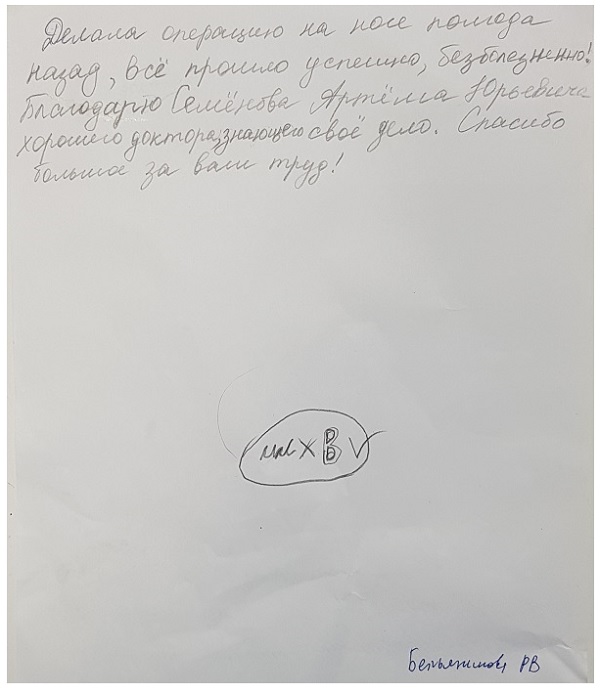 Делала операцию на носе полгода
назад, всё прошло успешно, безболезненно!
Благодарю Семёнова Артёма Юрьевича
хорошего доктора, знающего своё дело. Спасибо
большое за ваш труд!
В V
РВ